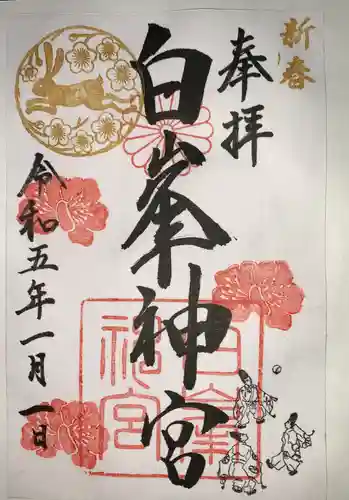 新春
奉拝
白峯神宮
白峯神宮
令和五年一月一日